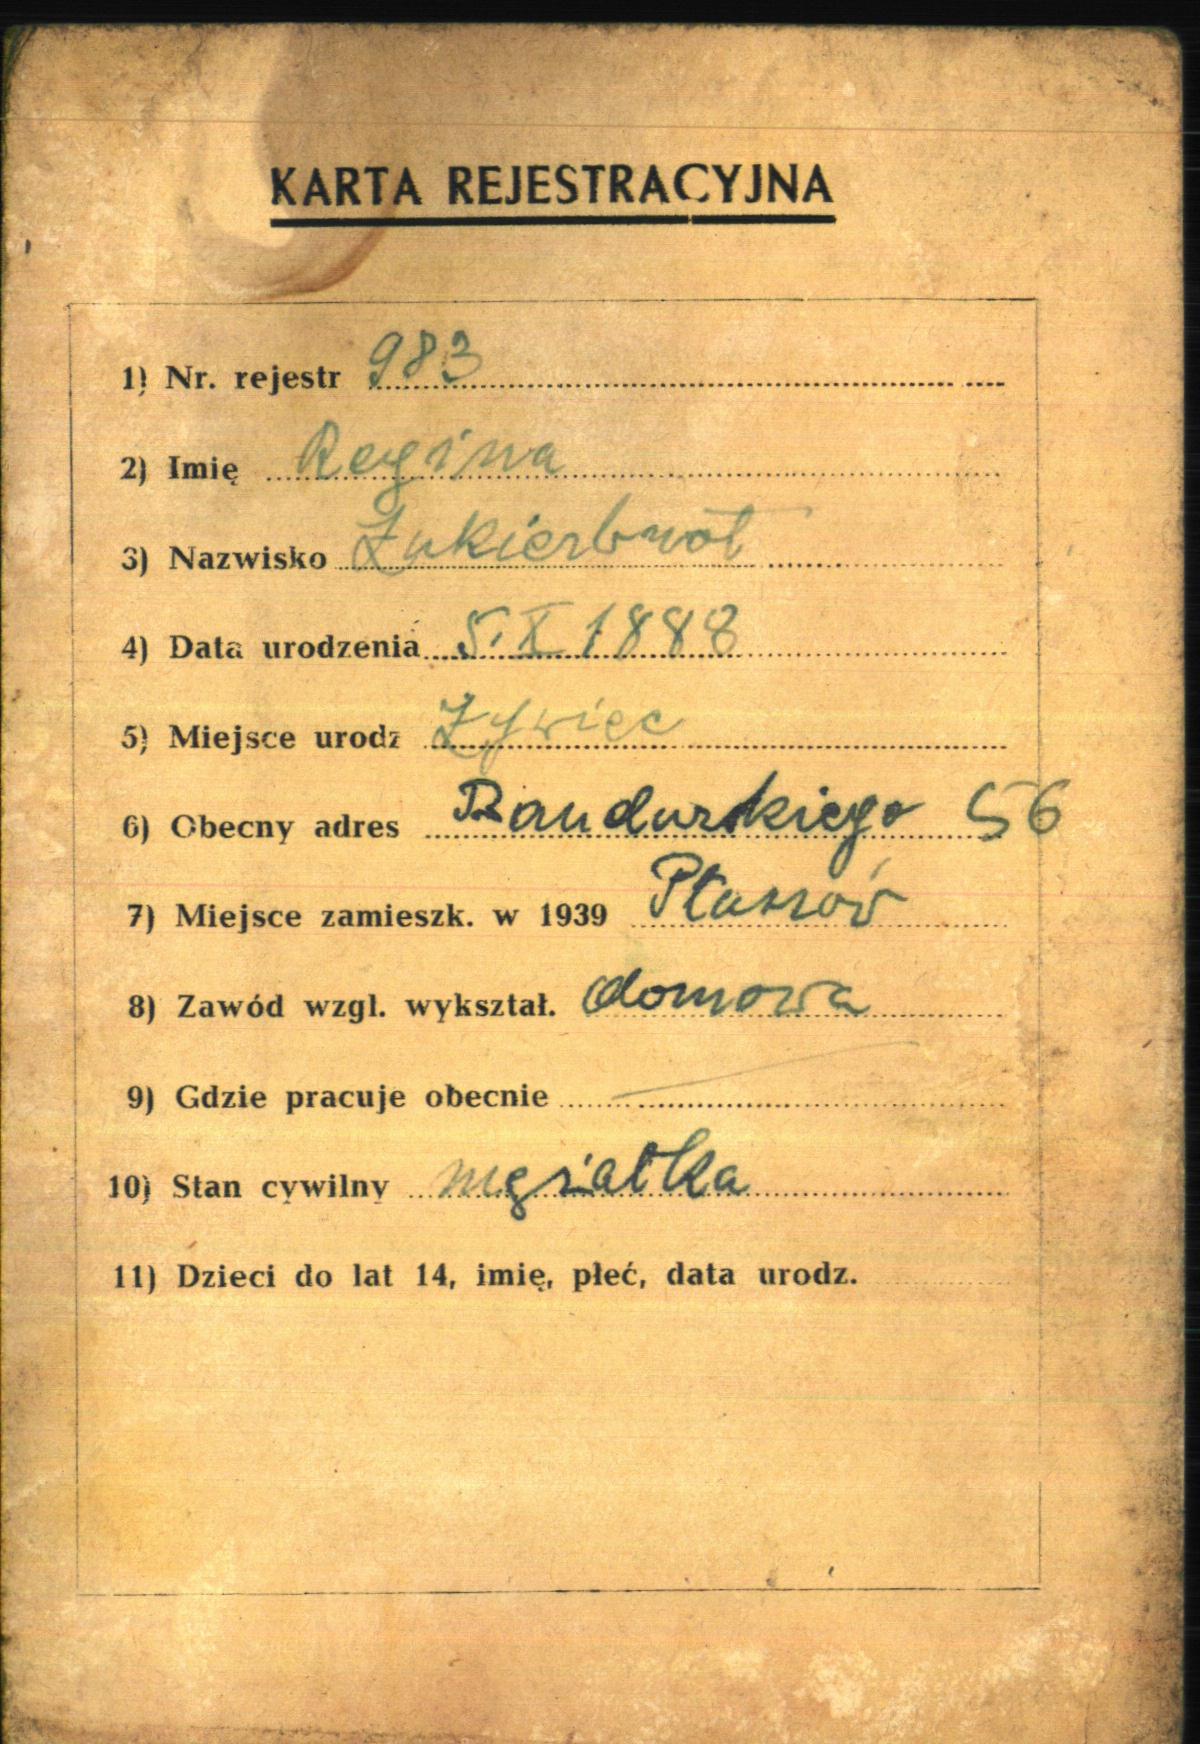 KARTA REJESTRACYJNA
1) Nr. rejestr 983
2) Imię Regina
3) Nazwisko Zukierbrot
4) Data urodzenia 5. X 1888
5) Miejsce urodz Żywiec
6) Obecny adres Bandurskiego 56
7) Miejsce zamieszk. w 1939 Płaszów
8) Zawód wzgl. wykształ. domowa
9) Gdzie pracuje obecnie
10) Stan cywilny mężatka
11) Dzieci do lat 14, imię, płeć, data urodz.